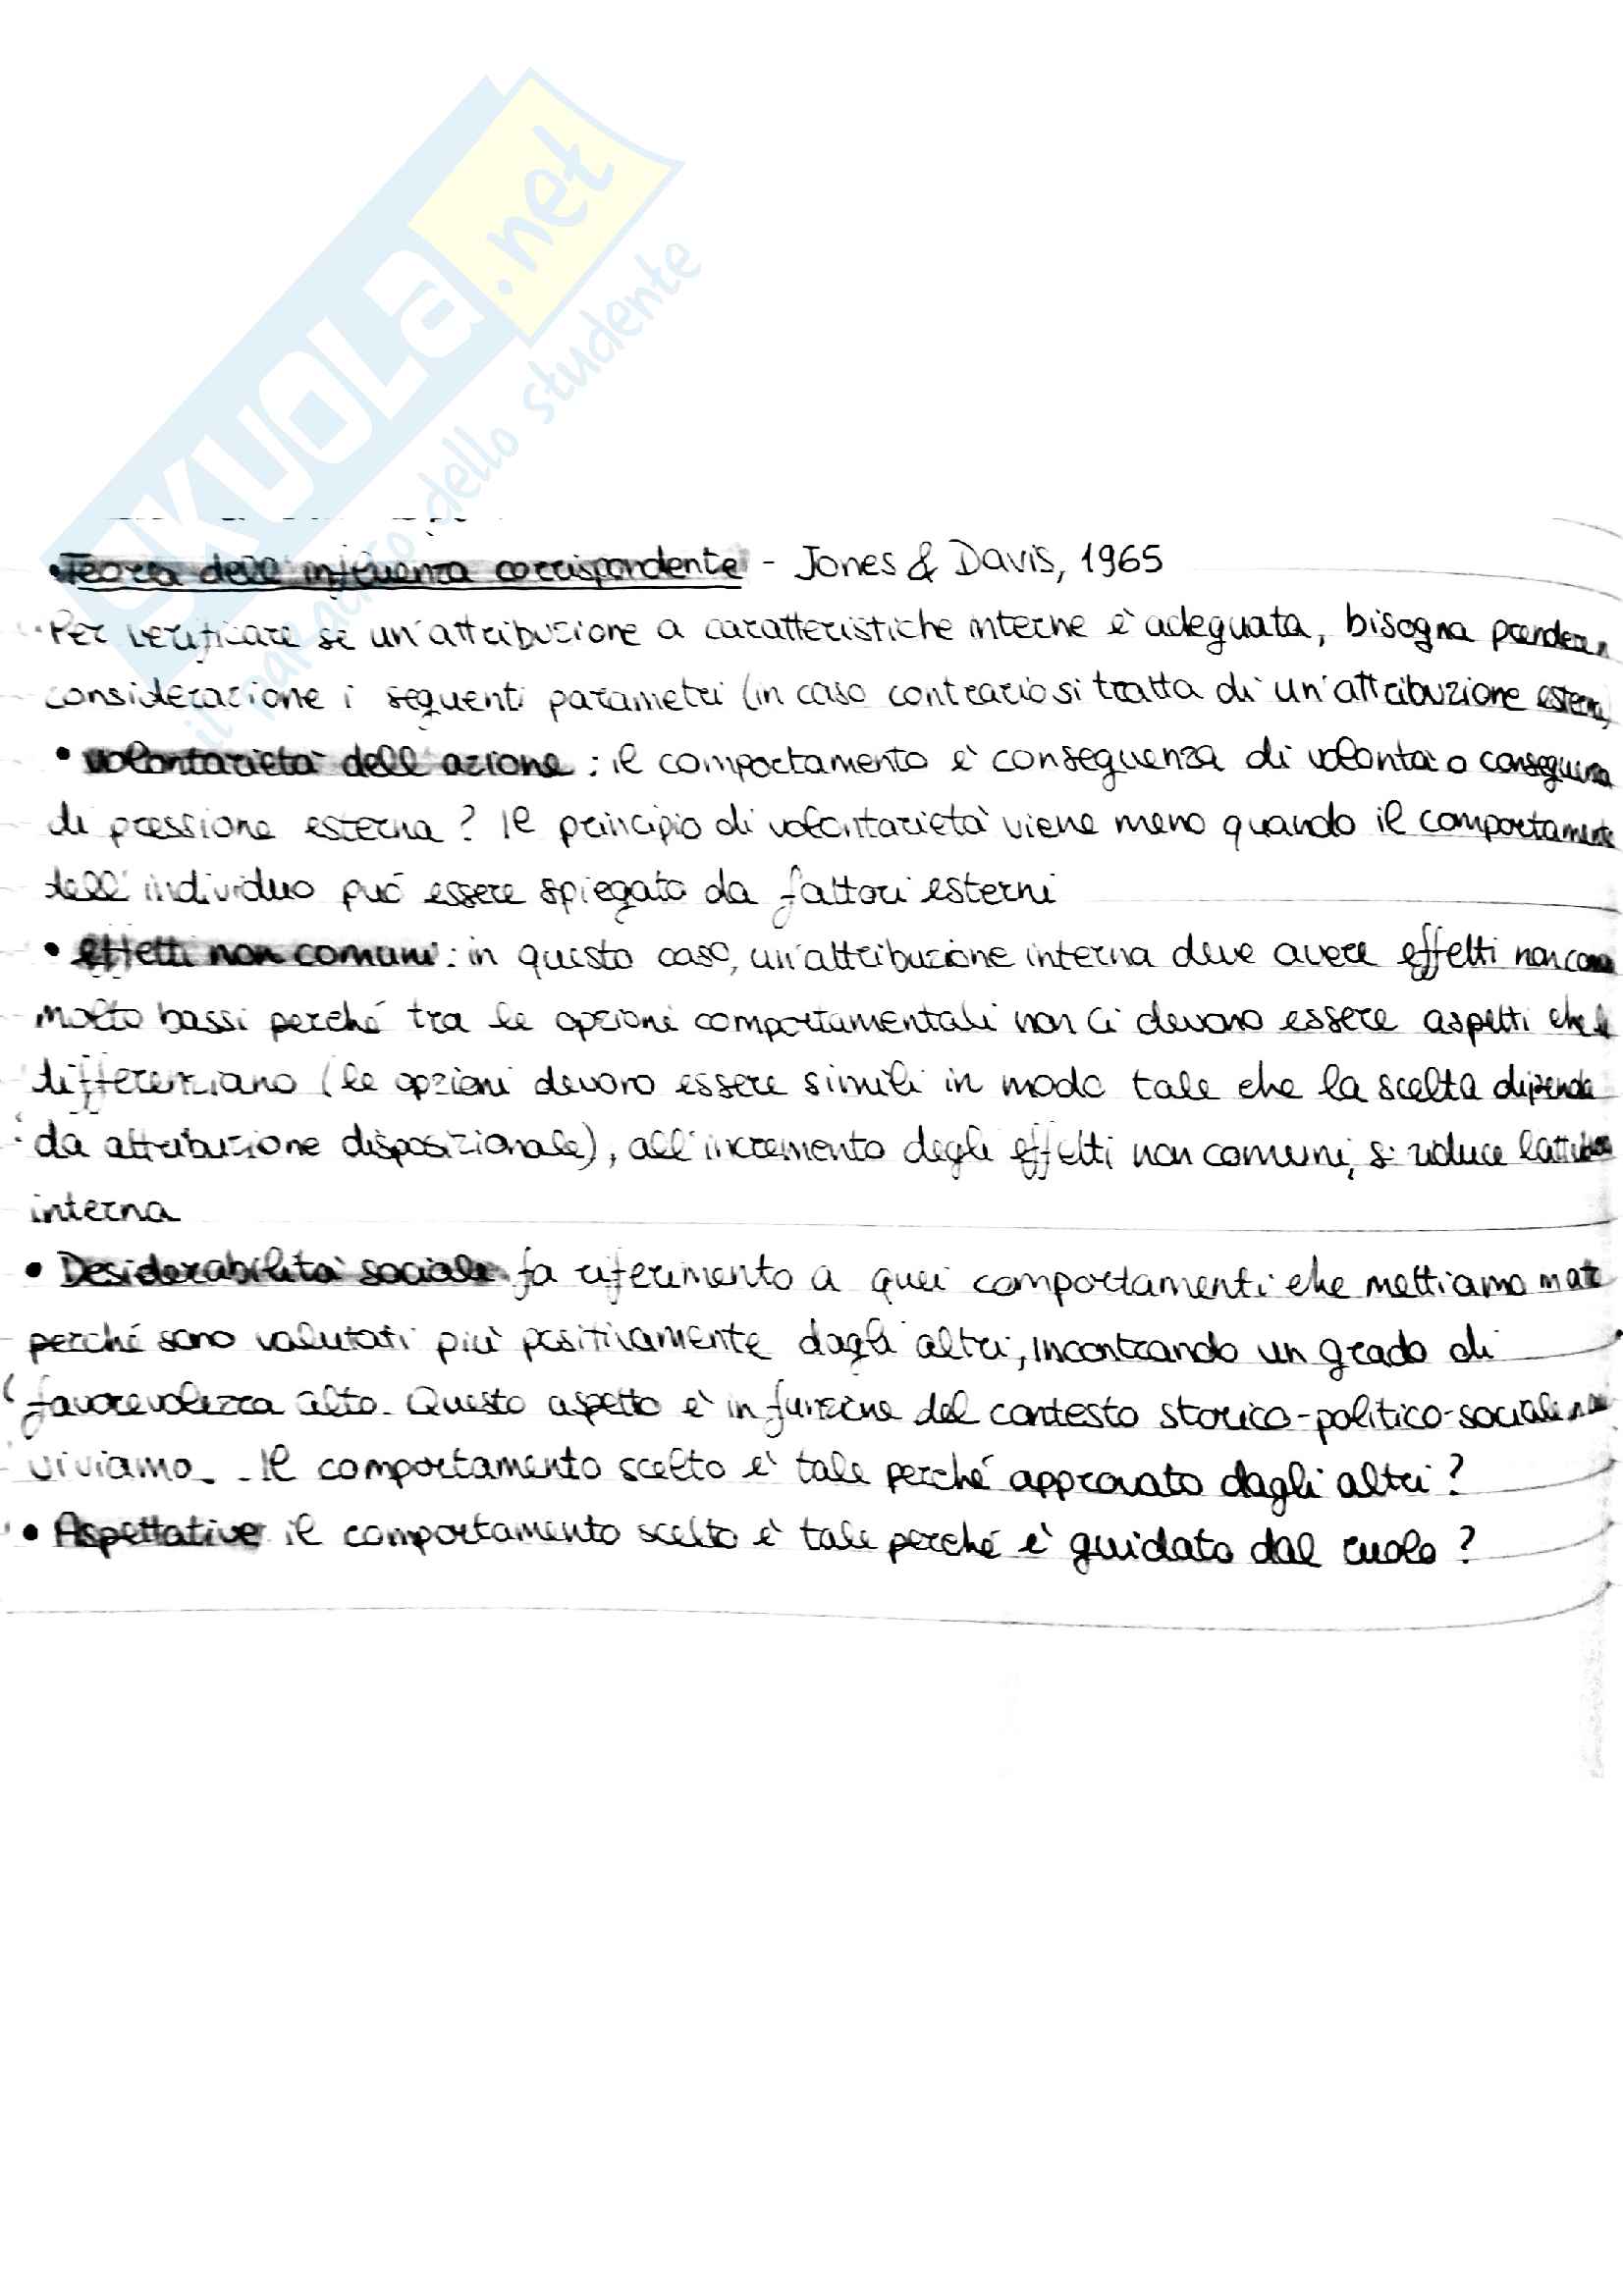 SKUOLA.net
il paradiso dello studente
• Teoria dell'influenza corrispondente - Jones & Davis, 1965
Per verificare se un'attribuzione a caratteristiche interne è adeguata, bisogna
considerazione i seguenti parametri (in caso contrario si tratta di un'attribuzione esterna)
• volontarietà dell'azione: il comportamento è conseguenza di volontà o
di pressione esterna? Il principio di volontarietà viene meno quando il comportamento
dell'individuo può essere spiegato da fattori esterni
• effetti non comuni: in questo caso, un'attribuzione interna deve avere effetti
molto bassi perché tra le opzioni comportamentali non ci devono essere aspetti che
differenziano (le opzioni devono essere simili in modo tale che la scelta dipenda
da attribuzione disposizionale), all'incremento degli effetti non comuni, si riduce
interna
• Desiderabilità sociale fa riferimento a quei comportamenti che mettiamo
perché sono valutati più positivamente dagli altri, incontrando un grado di
favorevolezza alto. Questo aspetto è in funzione del contesto storico-politico-sociale
viviamo. Il comportamento scelto è tale perché approvato dagli altri?
• Aspettative il comportamento scelto è tale perché è guidato dal ruolo?